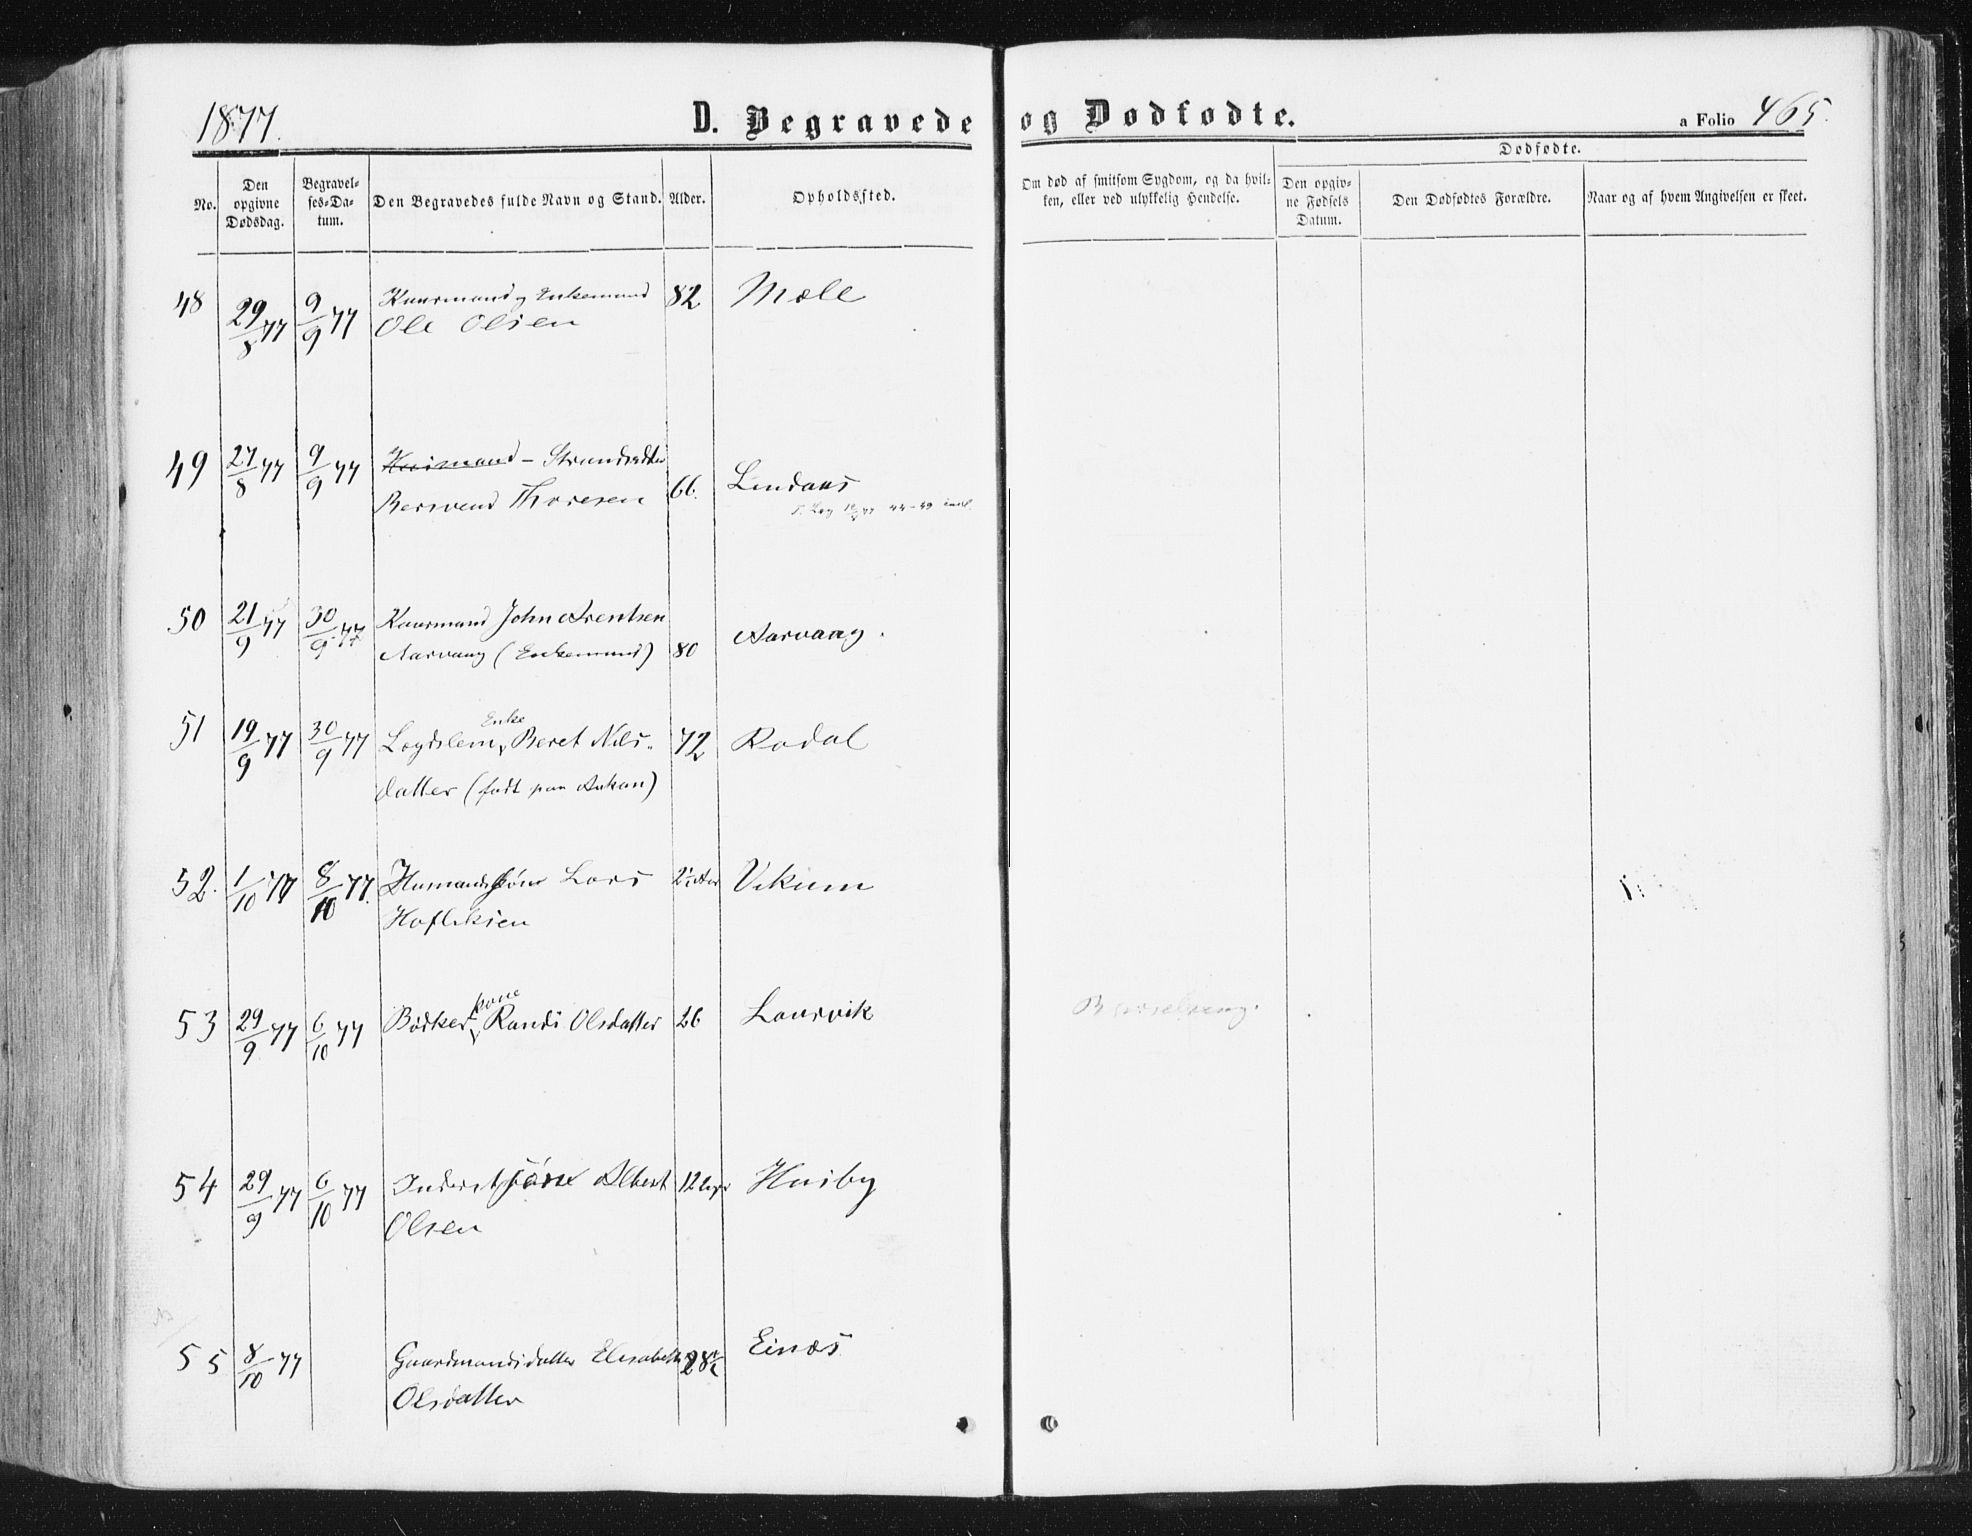 1877.
D. Begravede og Dødfødte.
a Folio 465.
No.
Den opgivne Dødsdag.
Begravelses-Datum.
Den Begravedes fulde Navn og Stand.
Alder.
Opholdssted.
Om død af smitsom Sygdom, og da hvilken, eller ved ulykkelig Hendelse.
Dødfødte.
Den opgivne Fødsels Datum.
Den Dødfødtes Forældre.
Naar og af hvem Angivelsen er skeet.
48 29/8 77 9/9 77 Kaarmand og Enkemand 82 Mæle
Ole Olsen
49 27/8 77 9/9 77 Husmand - Strandsidder
Bersvend Thoresen 66. Lendaas
50 21/9 77 30/9 77 Kaarmand John Arentsen
Aarvaag (Enkemand) 80 Aarvaag.
51 19/9 77 30/9 77 Lægdslem, Enke Beret Nils- 72 Rodal
datter (født paa Aukan)
52. 1/10 77 8/10 77. Husmandssøn Lars Vikum
Hofleksen
53 29/9 77 6/10 77 Bødker kone Randi Olsdatter 26 Laurvik
Barselseng.
54 29/9 77 6/10 77 Inderstsøn Albert Husby
Olsen
55 8/10 77 Gaardmandsdatter Elisabeth 28 Einæs
Olsdatter